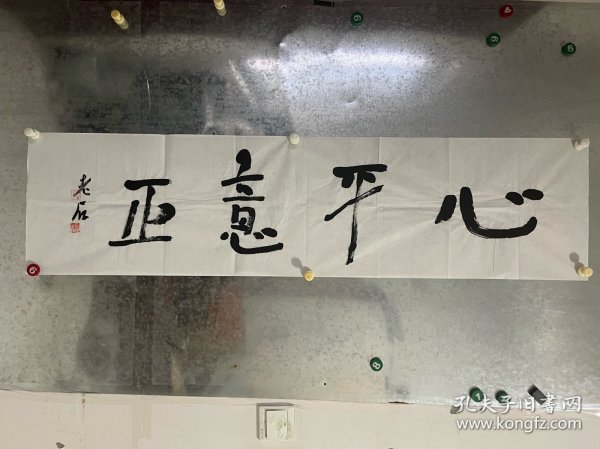 心平意正
老石
6
4
6
6
8
1
孔夫子旧书网
www.kongfz.com